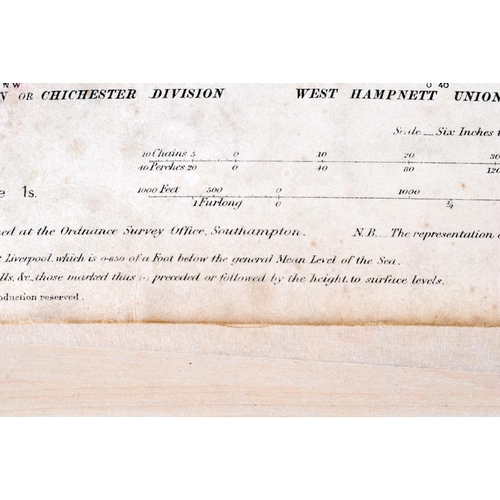 N W
0 40
N OR CHICHESTER DIVISION WEST HAMPNETT UNION
Scale — Six Inches t
10 Chains 5 0 10 20 30
40 Perches 20 0 40 80 120
e 1s.
1000 Feet 500 0 1000
1 Furlong 0
ed at the Ordnance Survey Office, Southampton. N.B. The representation
t Liverpool, which is 0·650 of a Foot below the general Mean Level of the Sea.
lls, &c., those marked thus preceded or followed by the height, to surface levels.
oduction reserved.